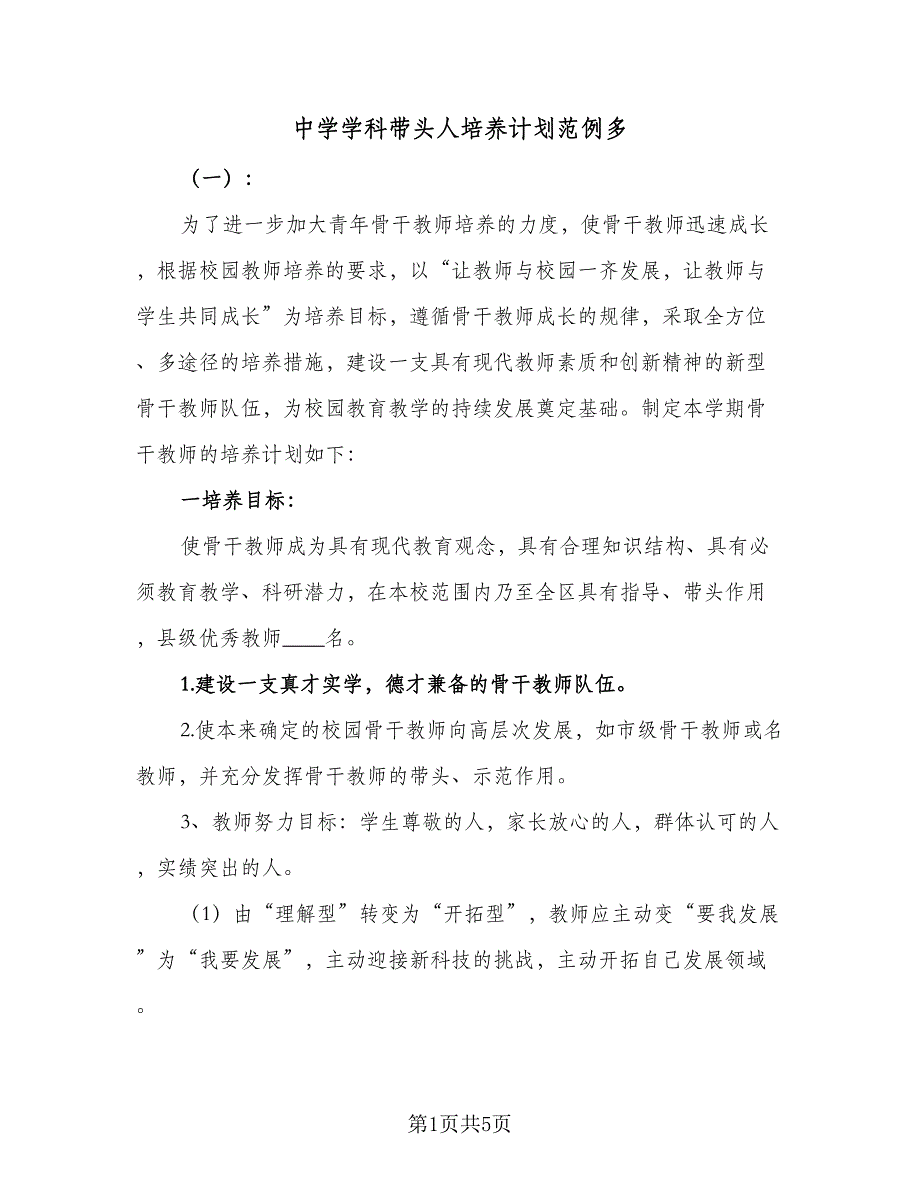 中学学科带头人培养计划范例多
（一）：
为了进一步加大青年骨干教师培养的力度，使骨干教师迅速成长
，根据校园教师培养的要求，以“让教师与校园一齐发展，让教师与
学生共同成长”为培养目标，遵循骨干教师成长的规律，采取全方位
、多途径的培养措施，建设一支具有现代教师素质和创新精神的新型
骨干教师队伍，为校园教育教学的持续发展奠定基础。制定本学期骨
干教师的培养计划如下：
一培养目标：
使骨干教师成为具有现代教育观念，具有合理知识结构、具有必
须教育教学、科研潜力，在本校范围内乃至全区具有指导、带头作用
，县级优秀教师____名。
1.建设一支真才实学，德才兼备的骨干教师队伍。
2.使本来确定的校园骨干教师向高层次发展，如市级骨干教师或名
教师，并充分发挥骨干教师的带头、示范作用。
3、教师努力目标：学生尊敬的人，家长放心的人，群体认可的人
，实绩突出的人。
（1）由“理解型”转变为“开拓型”，教师应主动变“要我发展
”为“我要发展”，主动迎接新科技的挑战，主动开拓自己发展领域
。
第1页共5页